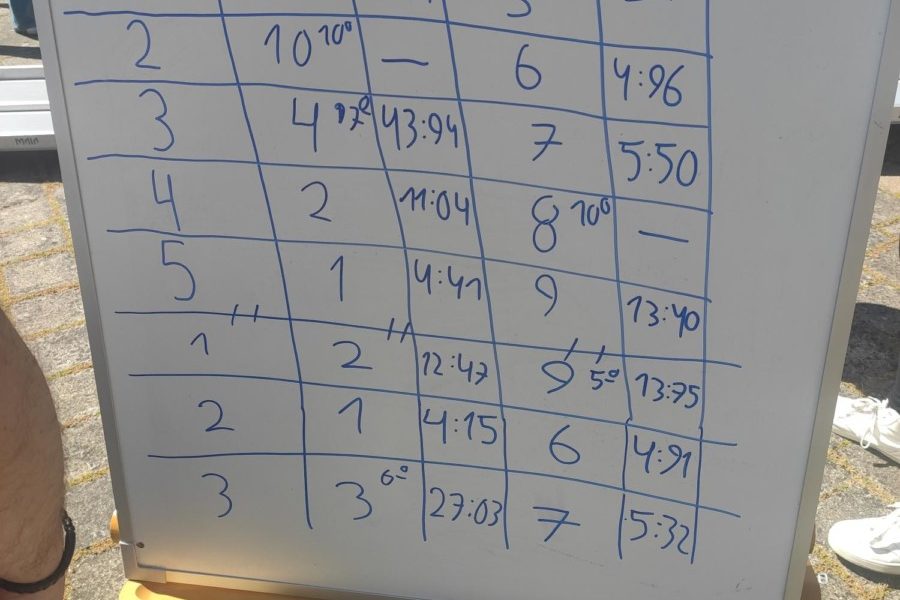 2 10 10º — 6 4:96
3 4 17º 43:94 7 5:50
4 2 11:04 8 10º —
5 1 4:41 9 13:40
1 2 12:47 9 5º 13:75
2 1 4:15 6 4:91
3 3 6º 27:03 7 5:32